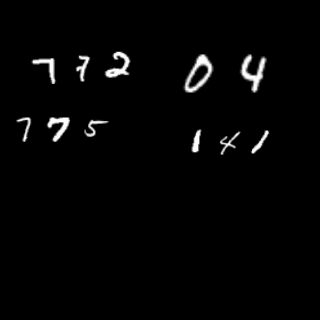 772 04
775 141